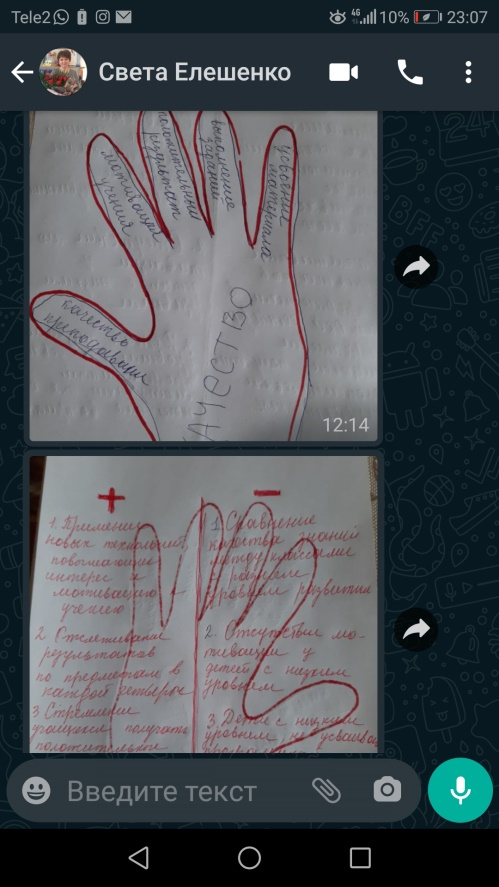 Tele2
4G
10%
23:07
Света Елешенко
качество
преподавации
мотивация
учения
положительный
результат
выполнение
заданий
усвоение
материала
КАЧЕСТВО
12:14
+
1. Применение
новых технологий,
повышающих
интерес и
мотивацию к
учению
2. Отслеживание
результатов
по предметам в
каждой четверти
3 Стремление
учащихся получать
положительной
−
1. Сравнение
качества знаний
между классами
с разным
уровнем развития
2. Отсутствие мо-
тивации у
детей с низким
уровнем
3. Дети с низким
уровнем не усваивают
Введите текст